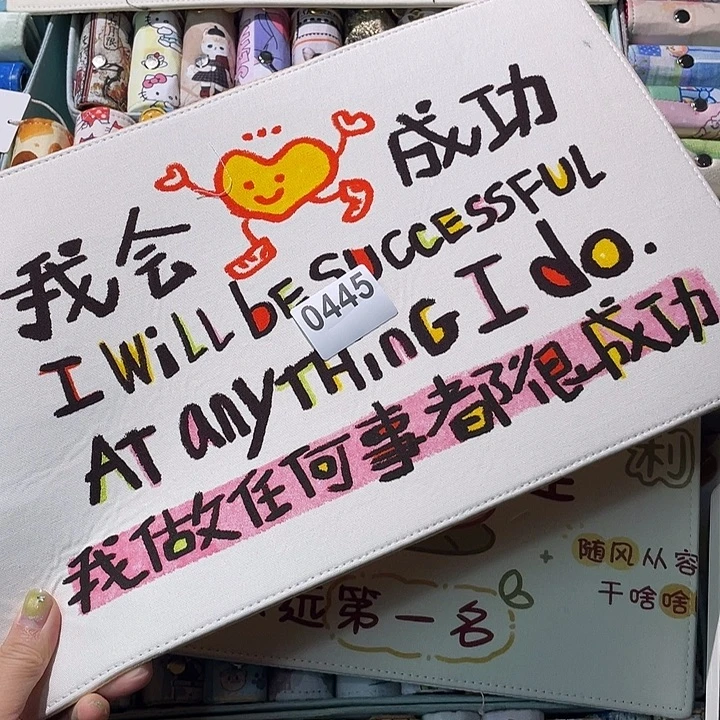 我会 成功
I WiLL bE SUCCESSFUL
0445
AT anyTHinG I do.
我做任何事都很成功
利
随风从容
干啥啥
远第一名